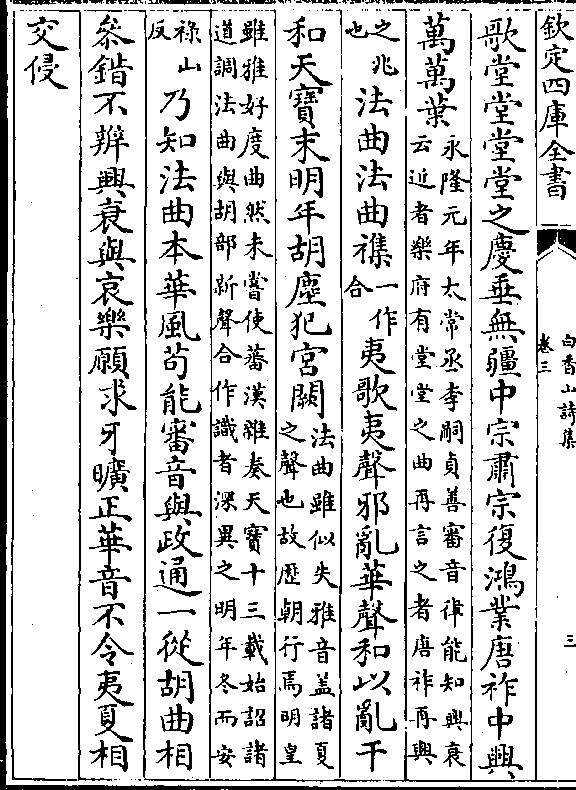 欽定四庫全書
白香山詩集
卷三
三
歌堂堂堂堂之慶垂無疆中宗肅宗復鴻業唐祚中興
萬萬葉永隆元年太常丞李嗣貞善審音律能知興衰
云近者樂府有堂堂之曲再言之者唐祚再興
之兆
也法曲法曲襍一作
合夷歌夷聲邪亂華聲和以亂干
和天寶末明年胡塵犯宮闕法曲雖似失雅音盖諸夏
之聲也故歷朝行焉明皇
雖雅好度曲然未嘗使蕃漢雜奏天寶十三載始詔諸
道調法曲與胡部新聲合作識者深異之明年冬而安
祿山
反乃知法曲本華風茍能審音與政通一從胡曲相
叅錯不辨興衰與哀樂願求牙曠正華音不令夷夏相
交侵